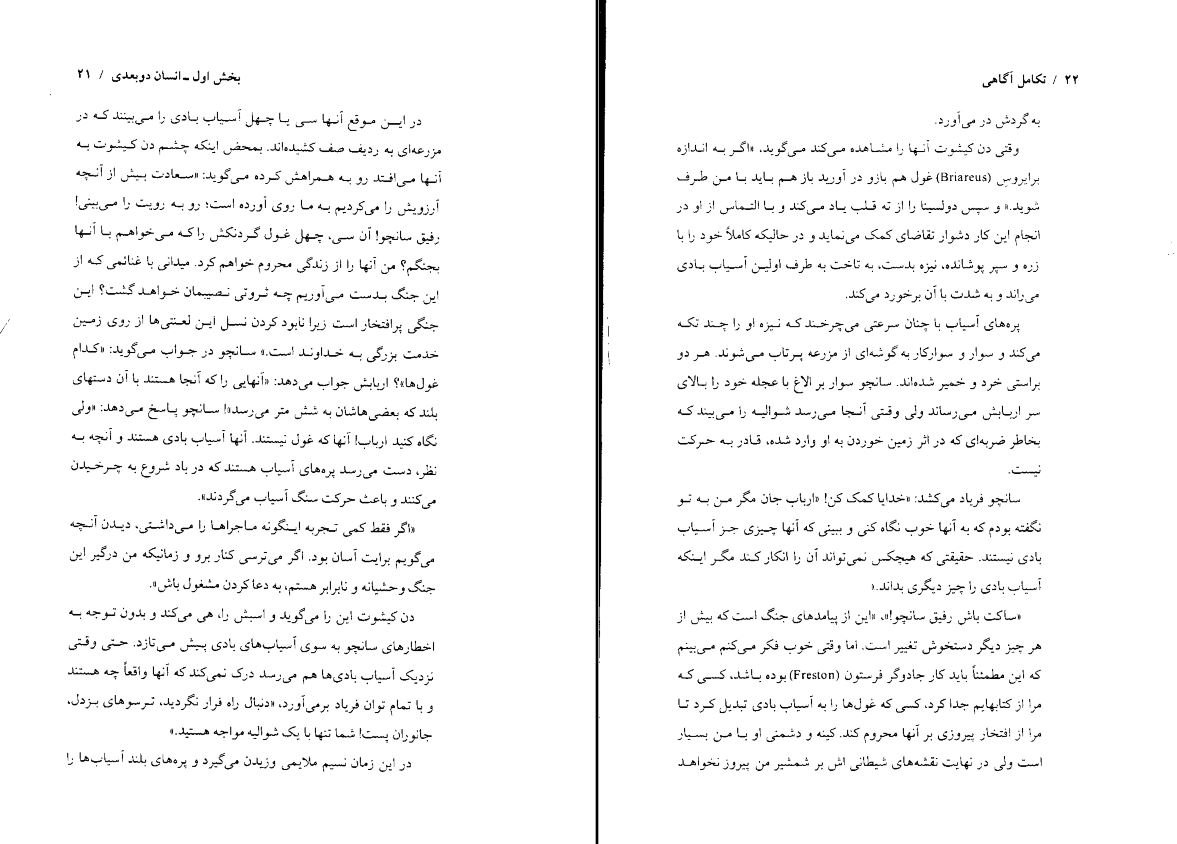 بخش اول ـ انسان دوبعدی / ۲۱
در ایـن مـوقع آنـها سـی یـا چـهل آسـیاب بـادی را مـی‌بینند کـه در
مزرعه‌ای به ردیف صف کشیده‌اند. بمحض اینکه چشـم دن کـیشوت بـه
آنـها مـی‌افـتد رو بـه هـمراهش کـرده مـی‌گوید: «سـعادت بـیش از آنـچه
آرزویش را می‌کردیم بـه مـا روی آورده است؛ رو بـه رویت را مـی‌بینی!
رفیق سانچو! آن سی، چـهل غـول گـردنکش را کـه مـی‌خواهـم بـا آنـها
بجنگم؟ من آنها را از زندگی محروم خواهم کرد. میدانی با غنائمی کـه از
این جنگ بـدست مـی‌آوریم چـه ثـروتی نـصیبمان خـواهـد گشت؟ ایـن
جنگی پرافتخار است زیرا نابود کردن نسـل ایـن لعـنتی‌ها از روی زمـین
خدمت بزرگی بـه خـداونـد است.» سـانچو در جـواب مـی‌گوید: «کـدام
غول‌ها»؟ اربابش جواب می‌دهد: «آنهایی را که آنجا هستند با آن دستهای
بلند که بعضی‌هاشان به شش متر می‌رسد»! سـانچو پـاسخ مـی‌دهد: «ولی
نگاه کنید ارباب! آنها که غول نیستند. آنها آسیاب بادی هستند و آنچه بـه
نظر، دست می‌رسد پره‌های آسیاب هستند که در باد شروع به چـرخـیدن
می‌کنند و باعث حرکت سنگ آسیاب می‌گردند».
«اگر فقط کمی تـجربه ایـنگونه مـاجراها را مـی‌داشـتی، دیـدن آنـچه
می‌گویم برایت آسان بود. اگر می‌ترسی کنار برو و زمانیکه من درگیر این
جنگ وحشیانه و نابرابر هستم، به دعا کردن مشغول باش».
دن کیشوت این را می‌گوید و اسبش را، هی می‌کند و بدون تـوجه بـه
اخطارهای سانچو به سوی آسیاب‌های بادی پـیش مـی‌تازد. حـتی وقـتی
نزدیک آسیاب بادی‌ها هم می‌رسد درک نمی‌کند که آنها واقعاً چه هستند
و با تمام توان فریاد برمی‌آورد، «دنبال راه فرار نگردید، تـرسوهای بـزدل،
جانوران پست! شما تنها با یک شوالیه مواجه هستید.»
در این زمان نسیم ملایمی وزیدن می‌گیرد و پره‌های بلند آسیاب‌ها را
۲۲ / تکامل آگاهی
به گردش در می‌آورد.
وقتی دن کیشوت آنـها را مشـاهده مـی‌کند مـی‌گوید، «اگـر بـه انـدازه
برایروس (Briareus) غول هم بازو در آورید باز هـم بـاید بـا مـن طـرف
شوید.» و سپس دولسیتا را از ته قـلب یـاد مـی‌کند و بـا التـماس از او در
انجام این کار دشوار تقاضای کمک می‌نماید و در حالیکه کاملاً خود را با
زره و سپر پوشانده، نیزه بدست، به تاخت به طرف اولیـن آسـیاب بـادی
می‌راند و به شدت با آن برخورد می‌کند.
پره‌های آسیاب با چنان سرعتی می‌چرخـند کـه نـیزه او را چـند تکـه
می‌کند و سوار و سوارکار به گوشه‌ای از مزرعه پـرتاب مـی‌شوند. هـر دو
براستی خرد و خمیر شده‌اند. سانچو سوار بر الاغ با عجله خود را بـالای
سر اربـابش مـی‌رساند ولی وقـتی آنـجا مـی‌رسد شـوالیـه را مـی‌بیند کـه
بخاطر ضربه‌ای که در اثر زمین خوردن به او وارد شده، قـادر بـه حـرکت
نیست.
سانچو فریاد می‌کشد: «خدایا کمک کن! «اربـاب جـان مگـر مـن بـه تـو
نگفته بودم که به آنها خوب نگاه کنی و ببینی که آنها چـیزی جـز آسـیاب
بادی نیستند. حقیقتی که هیچکس نمی‌تواند آن را انکار کـند مگـر ایـنکه
آسیاب بادی را چیز دیگری بداند.»
«ساکت باش رفیق سانچو!»، «این از پیامدهای جنگ است که بیش از
هر چیز دیگر دستخوش تغییر است. اما وقتی خوب فکر مـی‌کنم مـی‌بینم
که این مطمئناً باید کار جادوگر فرستون (Freston) بوده بـاشد، کسـی کـه
مرا از کتابهایم جدا کرد، کسی که غول‌ها را به آسیاب بادی تبدیل کـرد تـا
مرا از افتخار پیروزی بر آنها محروم کند. کینه و دشمنی او بـا مـن بسـیار
است ولی در نهایت نقشه‌های شیطانی اش بر شمشیر من پیروز نخواهـد